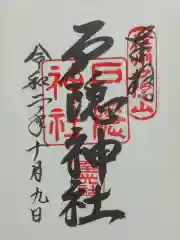 奉拝
戸隠神社
令和二年十月九日
戸隠
神社